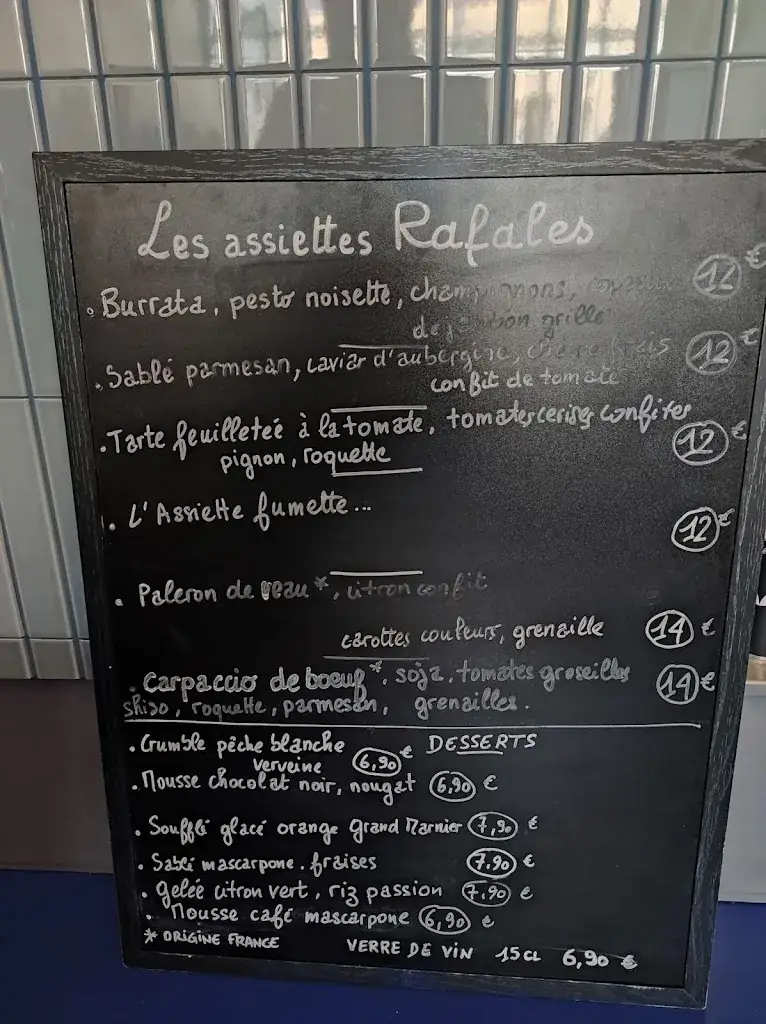 Les assiettes Rafales
• Burrata, pesto noisette, champignons, copeaux 12 €
de jambon grillé
• Sablé parmesan, caviar d'aubergine, chèvre frais 12 €
confit de tomate
• Tarte feuilleteé à la tomate, tomates cerises confites
pignon, roquette 12 €
• L'Assiette fumette... 12 €
• Paleron de veau*, citron confit
carottes couleurs, grenaille 14 €
• Carpaccio de boeuf*, soja, tomates groseilles 14 €
shiso, roquette, parmesan, grenailles.
DESSERTS
• Crumble pêche blanche
verveine 6,90 €
• Mousse chocolat noir, nougat 6,90 €
• Soufflé glacé orange Grand Marnier 7,90 €
• Sablé mascarpone. fraises 7.90 €
• gelée citron vert, riz passion 7,90 €
• Mousse café mascarpone 6,90 €
* ORIGINE FRANCE
VERRE DE VIN 15CL 6,90 €